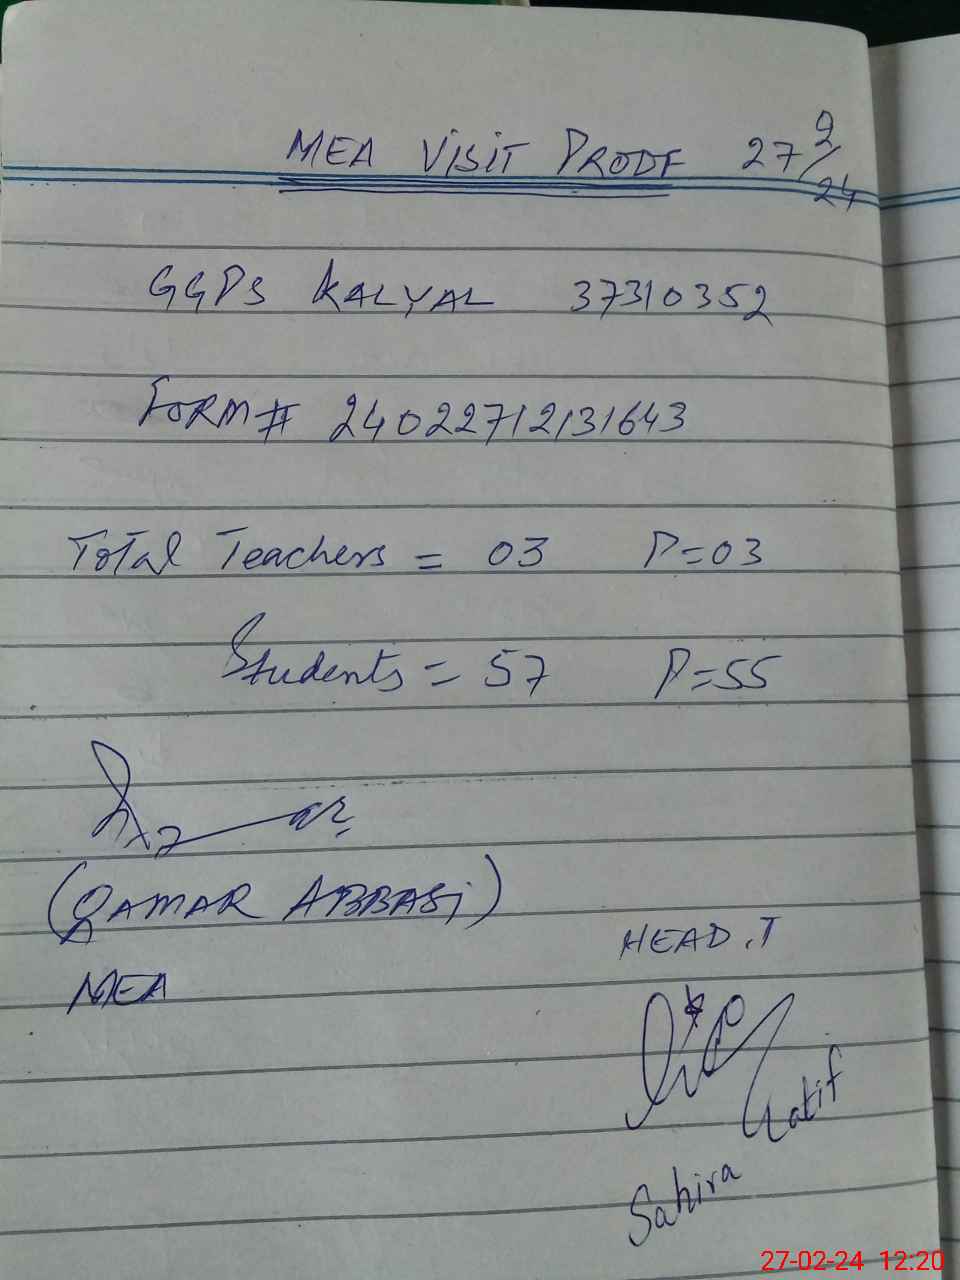 MEA VISIT PROOF 27/2/24
GGPS KALYAL 37310352
FORM# 24022712131643
Total Teachers = 03 P=03
Students = 57 P=55
(QAMAR ABBASI)
MEA
HEAD.T
Latif
Sahira
27-02-24 12:20